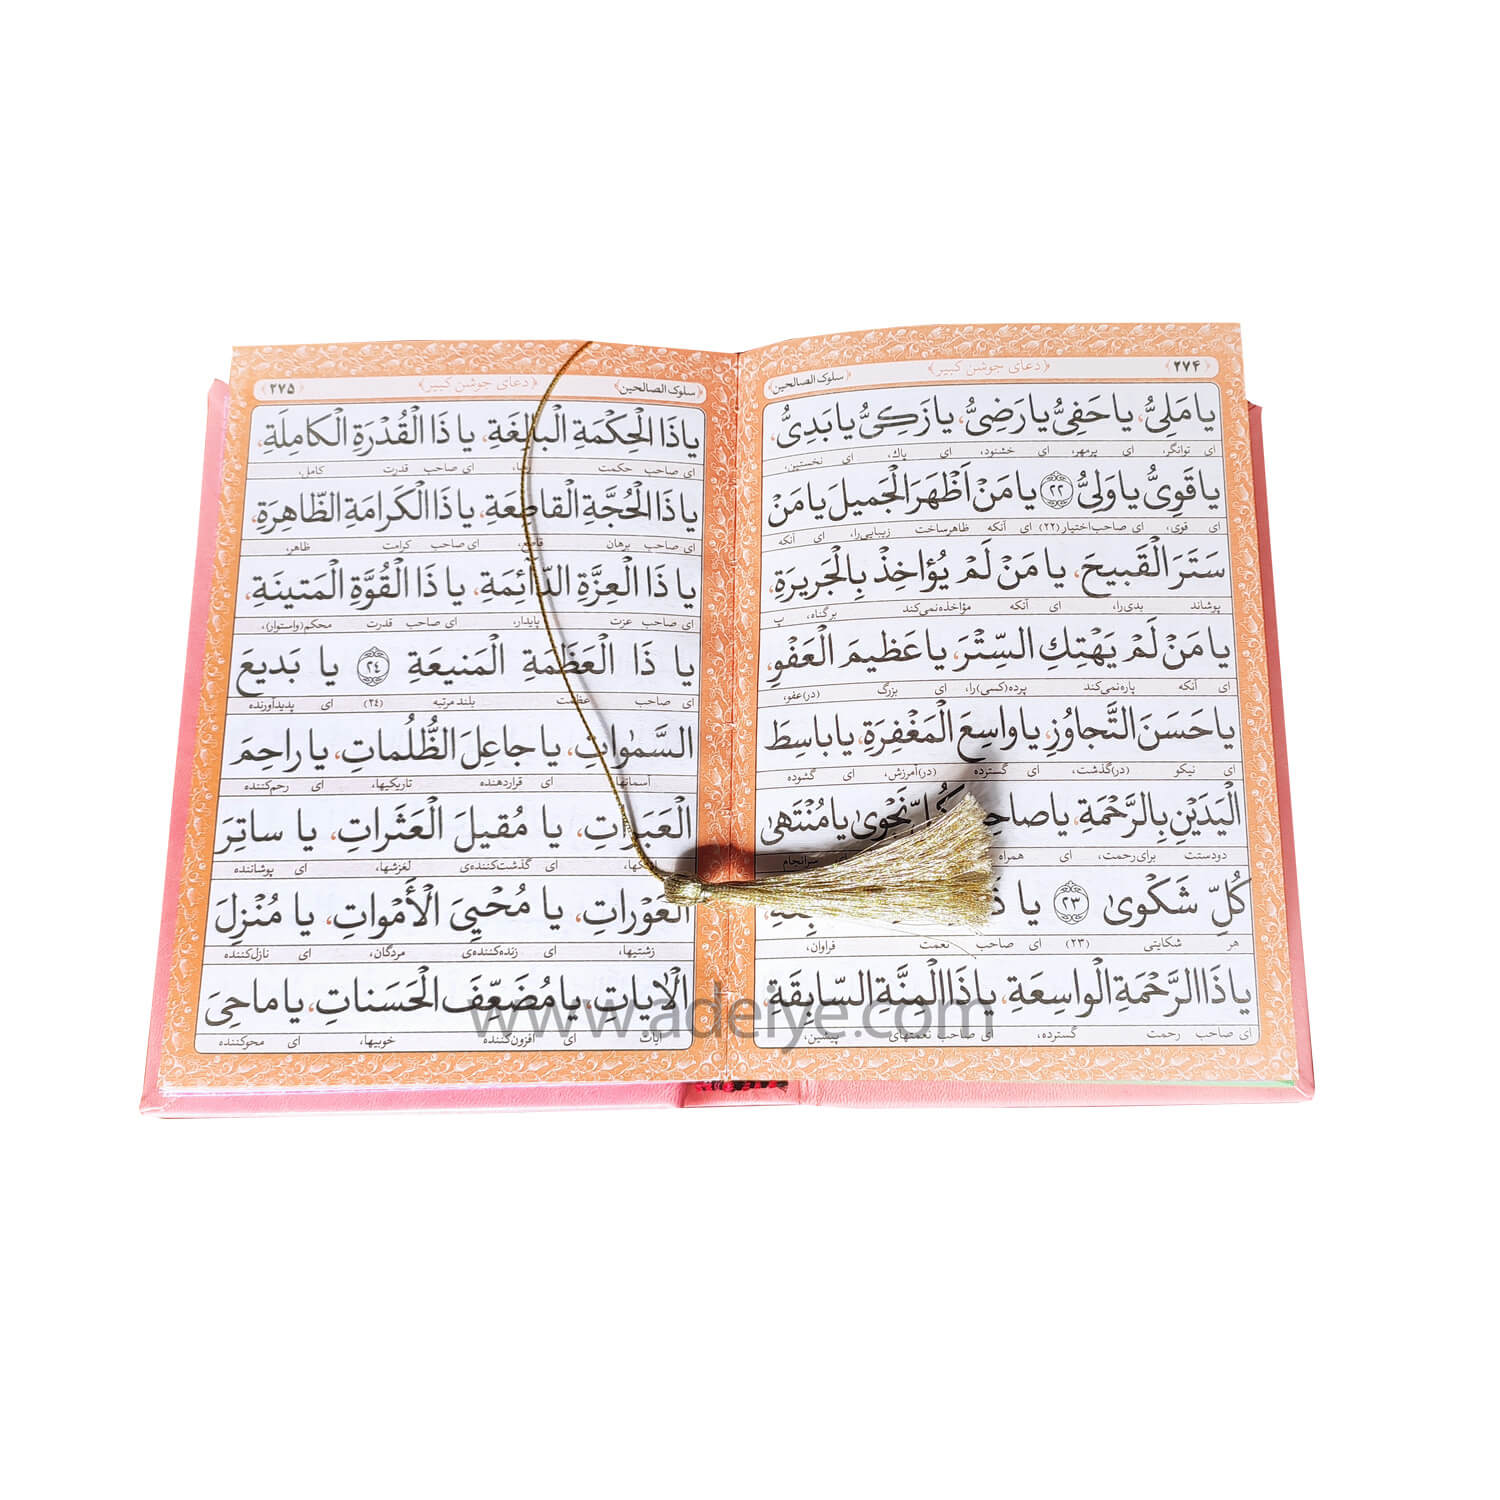 ۲۷۴ دعای جوشن کبیر سلوک الصالحین
یا مَلِیُّ، یا حَفِیُّ یا رَضِیُّ، یا زَکِیُّ یا بَدِیُّ،
ای توانگر، ای پرمهر، ای خشنود، ای پاك، ای نخستین،
یا قَوِیُّ یا وَلِیُّ ﴿۲۲﴾ یا مَنْ اَظْهَرَ الْجَمیلَ یا مَنْ
ای قوی، ای صاحب‌اختیار (۲۲) ای آنکه ظاهرساخت زیبایی‌را، ای آنکه
سَتَرَ الْقَبیحَ، یا مَنْ لَمْ یُؤاخِذْ بِالْجَریرَةِ،
پوشاند بدی‌را، ای آنکه مؤاخذه‌نمی‌کند برگناه، پ
یا مَنْ لَمْ یَهْتِكِ السِّتْرَ، یا عَظیمَ الْعَفْوِ،
ای آنکه پاره‌نمی‌کند پرده(کسی)را، ای بزرگ (در)عفو،
یا حَسَنَ التَّجاوُزِ، یا واسِعَ الْمَغْفِرَةِ، یا باسِطَ
ای نیکو (در)گذشت، ای گسترده (در)آمرزش، ای گشوده
الْیَدَیْنِ بِالرَّحْمَةِ، یا صاحِ كُلِّ نَجْوٰی یا مُنْتَهیٰ
دودستت برای‌رحمت، ای همراه ای سرانجام
كُلِّ شَكْویٰ ﴿۲۳﴾ یا
هر شکایتی (۲۳) ای صاحب نعمت فراوان،
یا ذَا الرَّحْمَةِ الْواسِعَةِ، یا ذَا الْمِنَّةِ السّابِقَةِ،
ای صاحب رحمت گسترده، ای صاحب نعمتهای پیشین،
سلوک الصالحین دعای جوشن کبیر ۲۷۵
یا ذَا الْحِكْمَةِ الْبالِغَةِ، یا ذَا الْقُدْرَةِ الْكامِلَةِ،
ای صاحب حکمت ای صاحب قدرت کامل،
یا ذَا الْحُجَّةِ الْقاطِعَةِ، یا ذَا الْكَرامَةِ الظّاهِرَةِ،
ای صاحب برهان قاطع، ای صاحب کرامت ظاهر،
یا ذَا الْعِزَّةِ الدّآئِمَةِ، یا ذَا الْقُوَّةِ الْمَتینَةِ،
ای صاحب عزت پایدار، ای صاحب قدرت محکم(واستوار)،
یا ذَا الْعَظَمَةِ الْمَنیعَةِ ﴿۲٤﴾ یا بَدیعَ
ای صاحب عظمت بلندمرتبه (۲٤) ای پدیدآورنده
السَّمٰواتِ، یا جاعِلَ الظُّلُماتِ، یا راحِمَ
آسمانها ای قراردهنده تاریکیها، ای رحم‌کننده
الْعَبَراتِ، یا مُقیلَ الْعَثَراتِ، یا ساتِرَ
ای گذشت‌کننده‌ی لغزشها، ای پوشاننده
الْعَوْراتِ، یا مُحْیِیَ الْأَمْواتِ، یا مُنْزِلَ
زشتیها، ای زنده‌کننده‌ی مردگان، ای نازل‌کننده
الْاٰیاتِ، یا مُضَعِّفَ الْحَسَناتِ، یا ماحِیَ
آیات ای افزون‌کننده خوبیها، ای محوکننده
www.adeiye.com